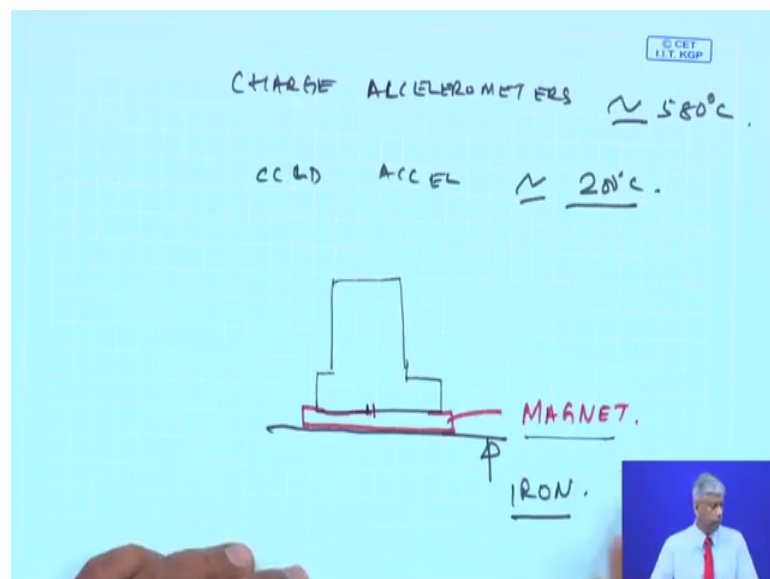 © CET
I.I.T. KGP
CHARGE ACCELEROMETERS ≃ 580°C.
CCLD ACCEL ≃ 200°C.
MAGNET.
IRON.